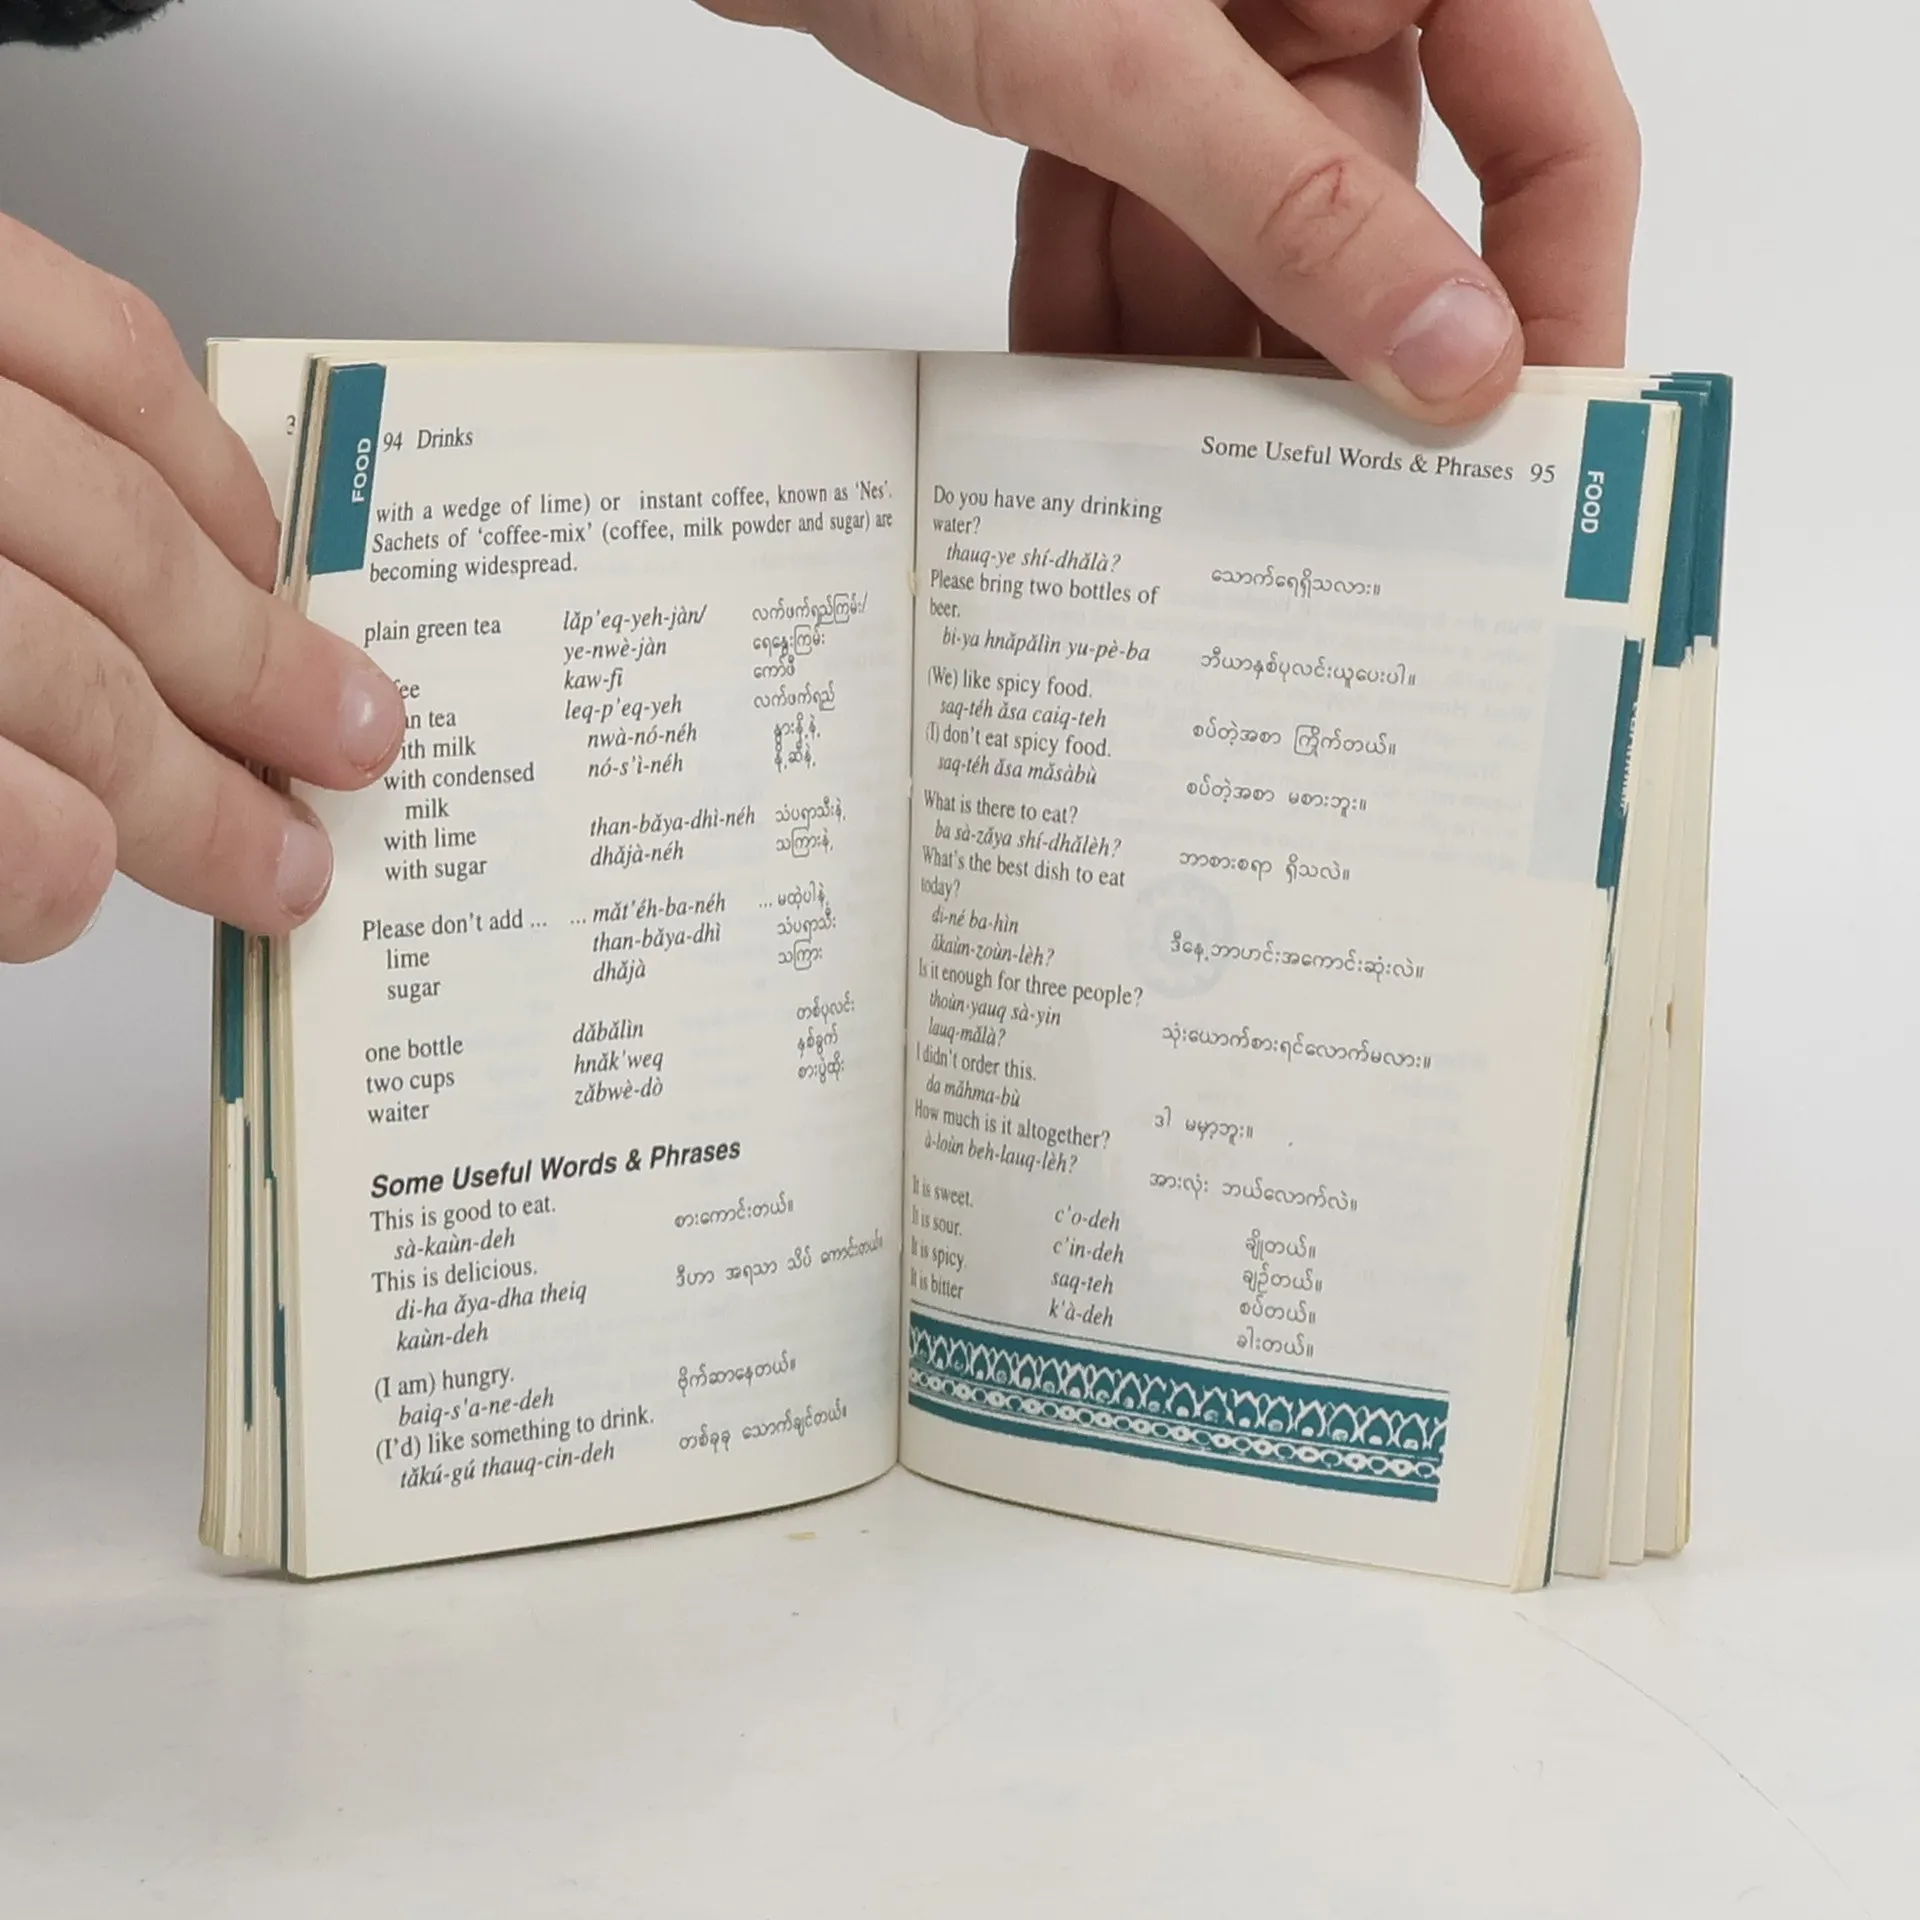 3
FOOD
94 Drinks
with a wedge of lime) or instant coffee, known as ‘Nes’.
Sachets of ‘coffee-mix’ (coffee, milk powder and sugar) are
becoming widespread.
plain green tea lăp’eq-yeh-jàn/ လက်ဖက်ရည်ကြမ်း/
ye-nwè-jàn ရေနွေးကြမ်း
kaw-fi ကော်ဖီ
tea leq-p’eq-yeh လက်ဖက်ရည်
with milk nwà-nó-néh နွားနို့နဲ့
with condensed nó-s’ì-néh နို့ဆီနဲ့
milk
with lime than-băya-dhì-néh သံပရာသီးနဲ့
with sugar dhăjà-néh သကြားနဲ့
Please don’t add ... ... măt’éh-ba-néh ... မထဲ့ပါနဲ့
lime than-băya-dhì သံပရာသီး
sugar dhăjà သကြား
one bottle dăbălìn တစ်ပုလင်း
two cups hnăk’weq နှစ်ခွက်
waiter zăbwè-dò စားပွဲထိုး
Some Useful Words & Phrases
This is good to eat.
sà-kaùn-deh စားကောင်းတယ်။
This is delicious.
di-ha ăya-dha theiq ဒီဟာ အရသာ သိပ် ကောင်းတယ်။
kaùn-deh
(I am) hungry.
baiq-s’a-ne-deh ဗိုက်ဆာနေတယ်။
(I’d) like something to drink.
tăkú-gú thauq-cin-deh တစ်ခုခု သောက်ချင်တယ်။
Some Useful Words & Phrases 95
FOOD
Do you have any drinking
water?
thauq-ye shí-dhălà? သောက်ရေရှိသလား။
Please bring two bottles of
beer.
bi-ya hnăpălìn yu-pè-ba ဘီယာနှစ်ပုလင်းယူပေးပါ။
(We) like spicy food.
saq-téh ăsa caiq-teh စပ်တဲ့အစာ ကြိုက်တယ်။
(I) don’t eat spicy food.
saq-téh ăsa măsàbù စပ်တဲ့အစာ မစားဘူး။
What is there to eat?
ba sà-zăya shí-dhălèh? ဘာစားစရာ ရှိသလဲ။
What’s the best dish to eat
today?
di-né ba-hìn
ăkaùn-zoùn-lèh? ဒီနေ့ဘာဟင်းအကောင်းဆုံးလဲ။
Is it enough for three people?
thoùn-yauq sà-yin
lauq-mălà? သုံးယောက်စားရင်လောက်မလား။
I didn’t order this.
da măhma-bù ဒါ မမှာ့ဘူး။
How much is it altogether?
à-loùn beh-lauq-lèh? အားလုံး ဘယ်လောက်လဲ။
It is sweet. c’o-deh ချိုတယ်။
It is sour. c’in-deh ချဉ်တယ်။
It is spicy. saq-teh စပ်တယ်။
It is bitter k’à-deh ခါးတယ်။